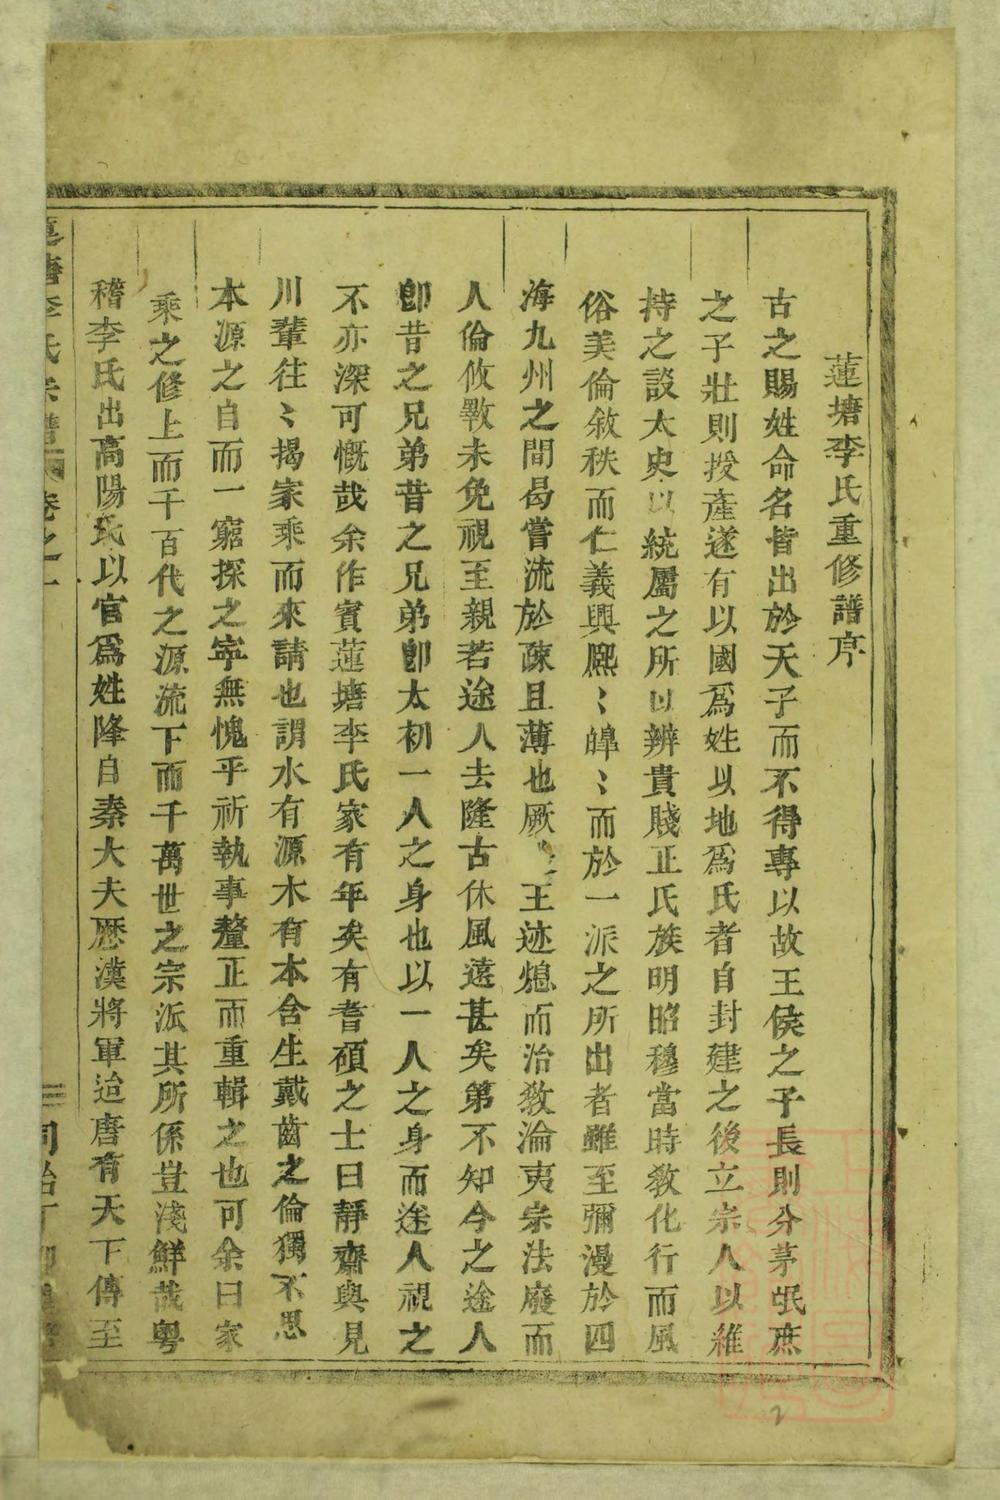 蓮塘李氏重修譜序
古之賜姓命名皆出於天子而不得專以故王侯之子長則分茅氓庶
之子壯則授產遂有以國爲姓以地爲氏者自封建之後立宗人以維
持之談太史以統屬之所以辨貴賤正氏族明昭穆當時敎化行而風
俗美倫敘秩而仁義興熈〻皞〻而於一派之所出者雖至彌漫於四
海九州之間曷嘗流於疎且薄也厥 王迹熄而治敎淪夷宗法廢而
人倫攸斁未免視至親若途人去隆古休風遠甚矣第不知今之途人
卽昔之兄弟昔之兄弟卽太初一人之身也以一人之身而途人視之
不亦深可慨哉余作賓蓮塘李氏家有年矣有耆碩之士曰靜齋與見
川輩往〻揭家乘而來請也謂水有源木有本含生戴齒之倫獨不思
本源之自而一窮探之寧無愧乎祈執事釐正而重輯之也可余曰家
乘之修上而千百代之源流下而千萬世之宗派其所係豈淺鮮哉粤
稽李氏出高陽氏以官爲姓降自秦大夫歷漢將軍迨唐有天下傳至
蓮塘李氏宗譜 卷之一 同治丁卯